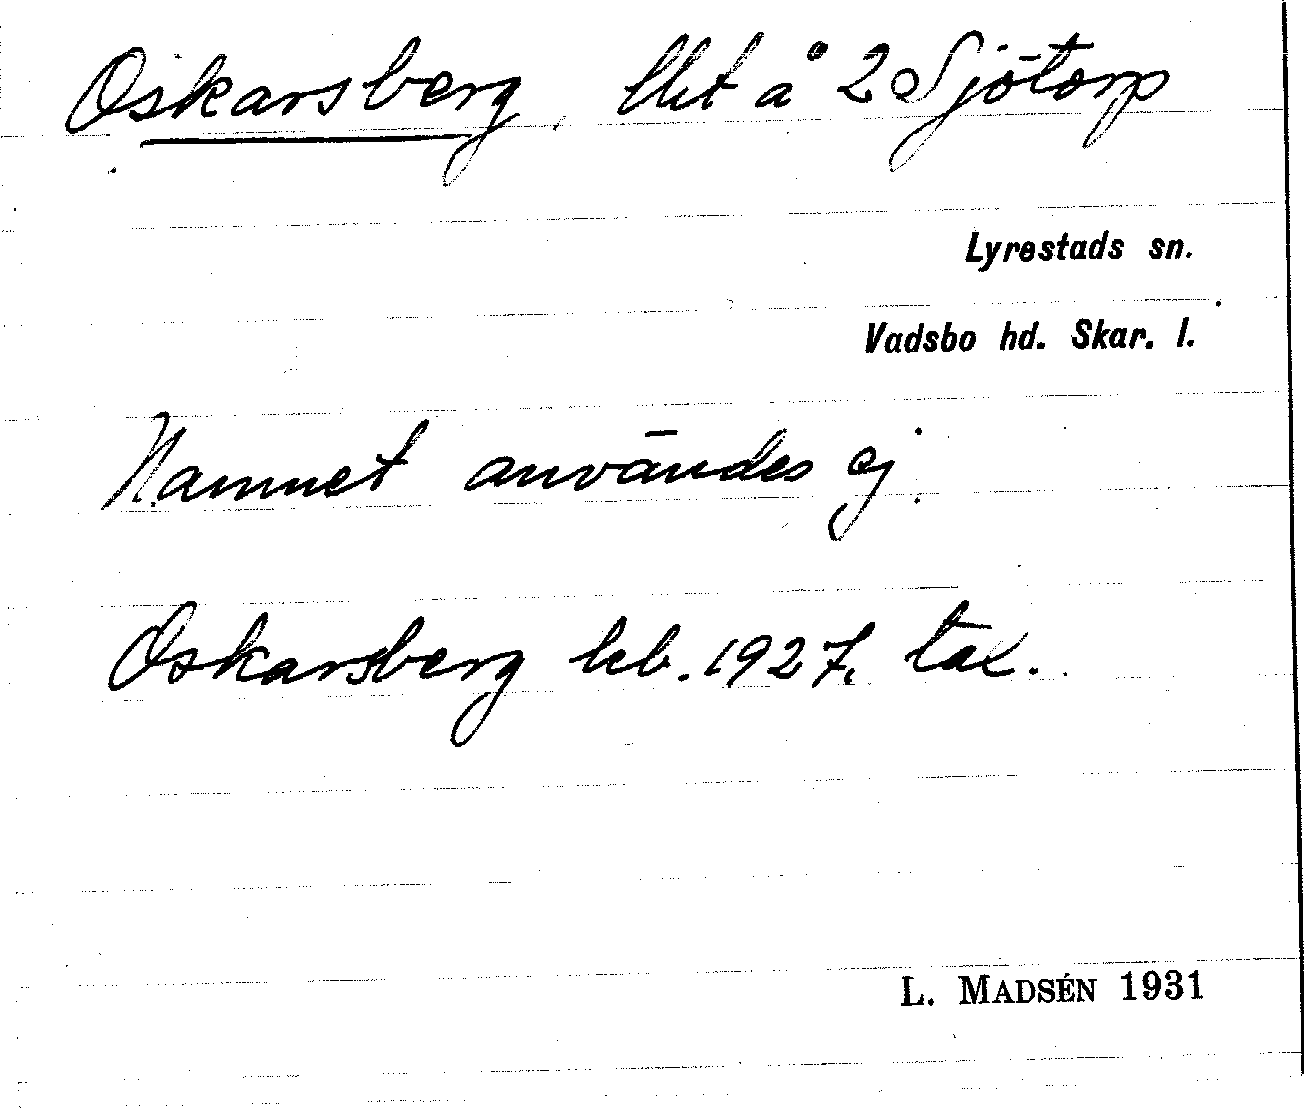 Oskarsberg, lht å 2 Sjötorp
Lyrestads sn.
Vadsbo hd. Skar. l.
Namnet användes ej.
Oskarsberg lvb. 1927. tax.
L. MADSÉN 1931